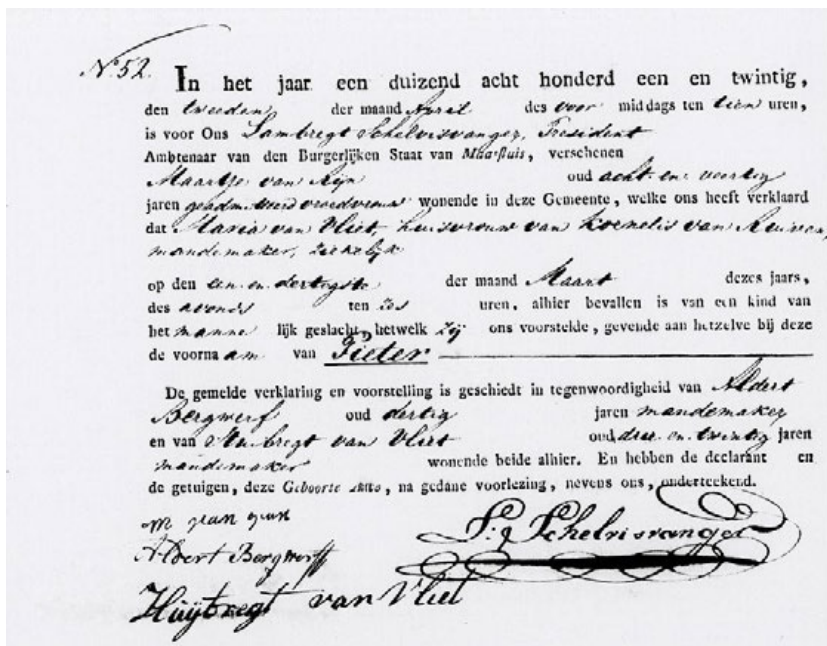 No. 52.
In het jaar een duizend acht honderd een en twintig,
den tweeden der maand April des voor middags ten tien uren,
is voor Ons Lambregt Schelvisvanger, President
Ambtenaar van den Burgerlijken Staat van Maassluis, verschenen
Maartje van Rijn oud acht en veertig
jaren geadmitteerd vroedvrouw wonende in deze Gemeente, welke ons heeft verklaard
dat Maria van Vliet, huisvrouw van Kornelis van
mandemaker, ziekelijk
op den een en dertigste der maand Maart dezes jaars,
des avonds ten zes uren, alhier bevallen is van een kind van
het manne lijk geslacht, hetwelk zij ons voorstelde, gevende aan hetzelve bij deze
de voorna am van Pieter
De gemelde verklaring en voorstelling is geschiedt in tegenwoordigheid van Aldert
Bergwerf oud dertig jaren mandemaker
en van van Vliet oud drie en twintig jaren
mandemaker wonende beide alhier. En hebben de declarant en
de getuigen, deze Geboorte Akte, na gedane voorlezing, nevens ons, onderteekend.
Schelvisvanger
Aldert Bergwerff
Huijbregt van Vliet